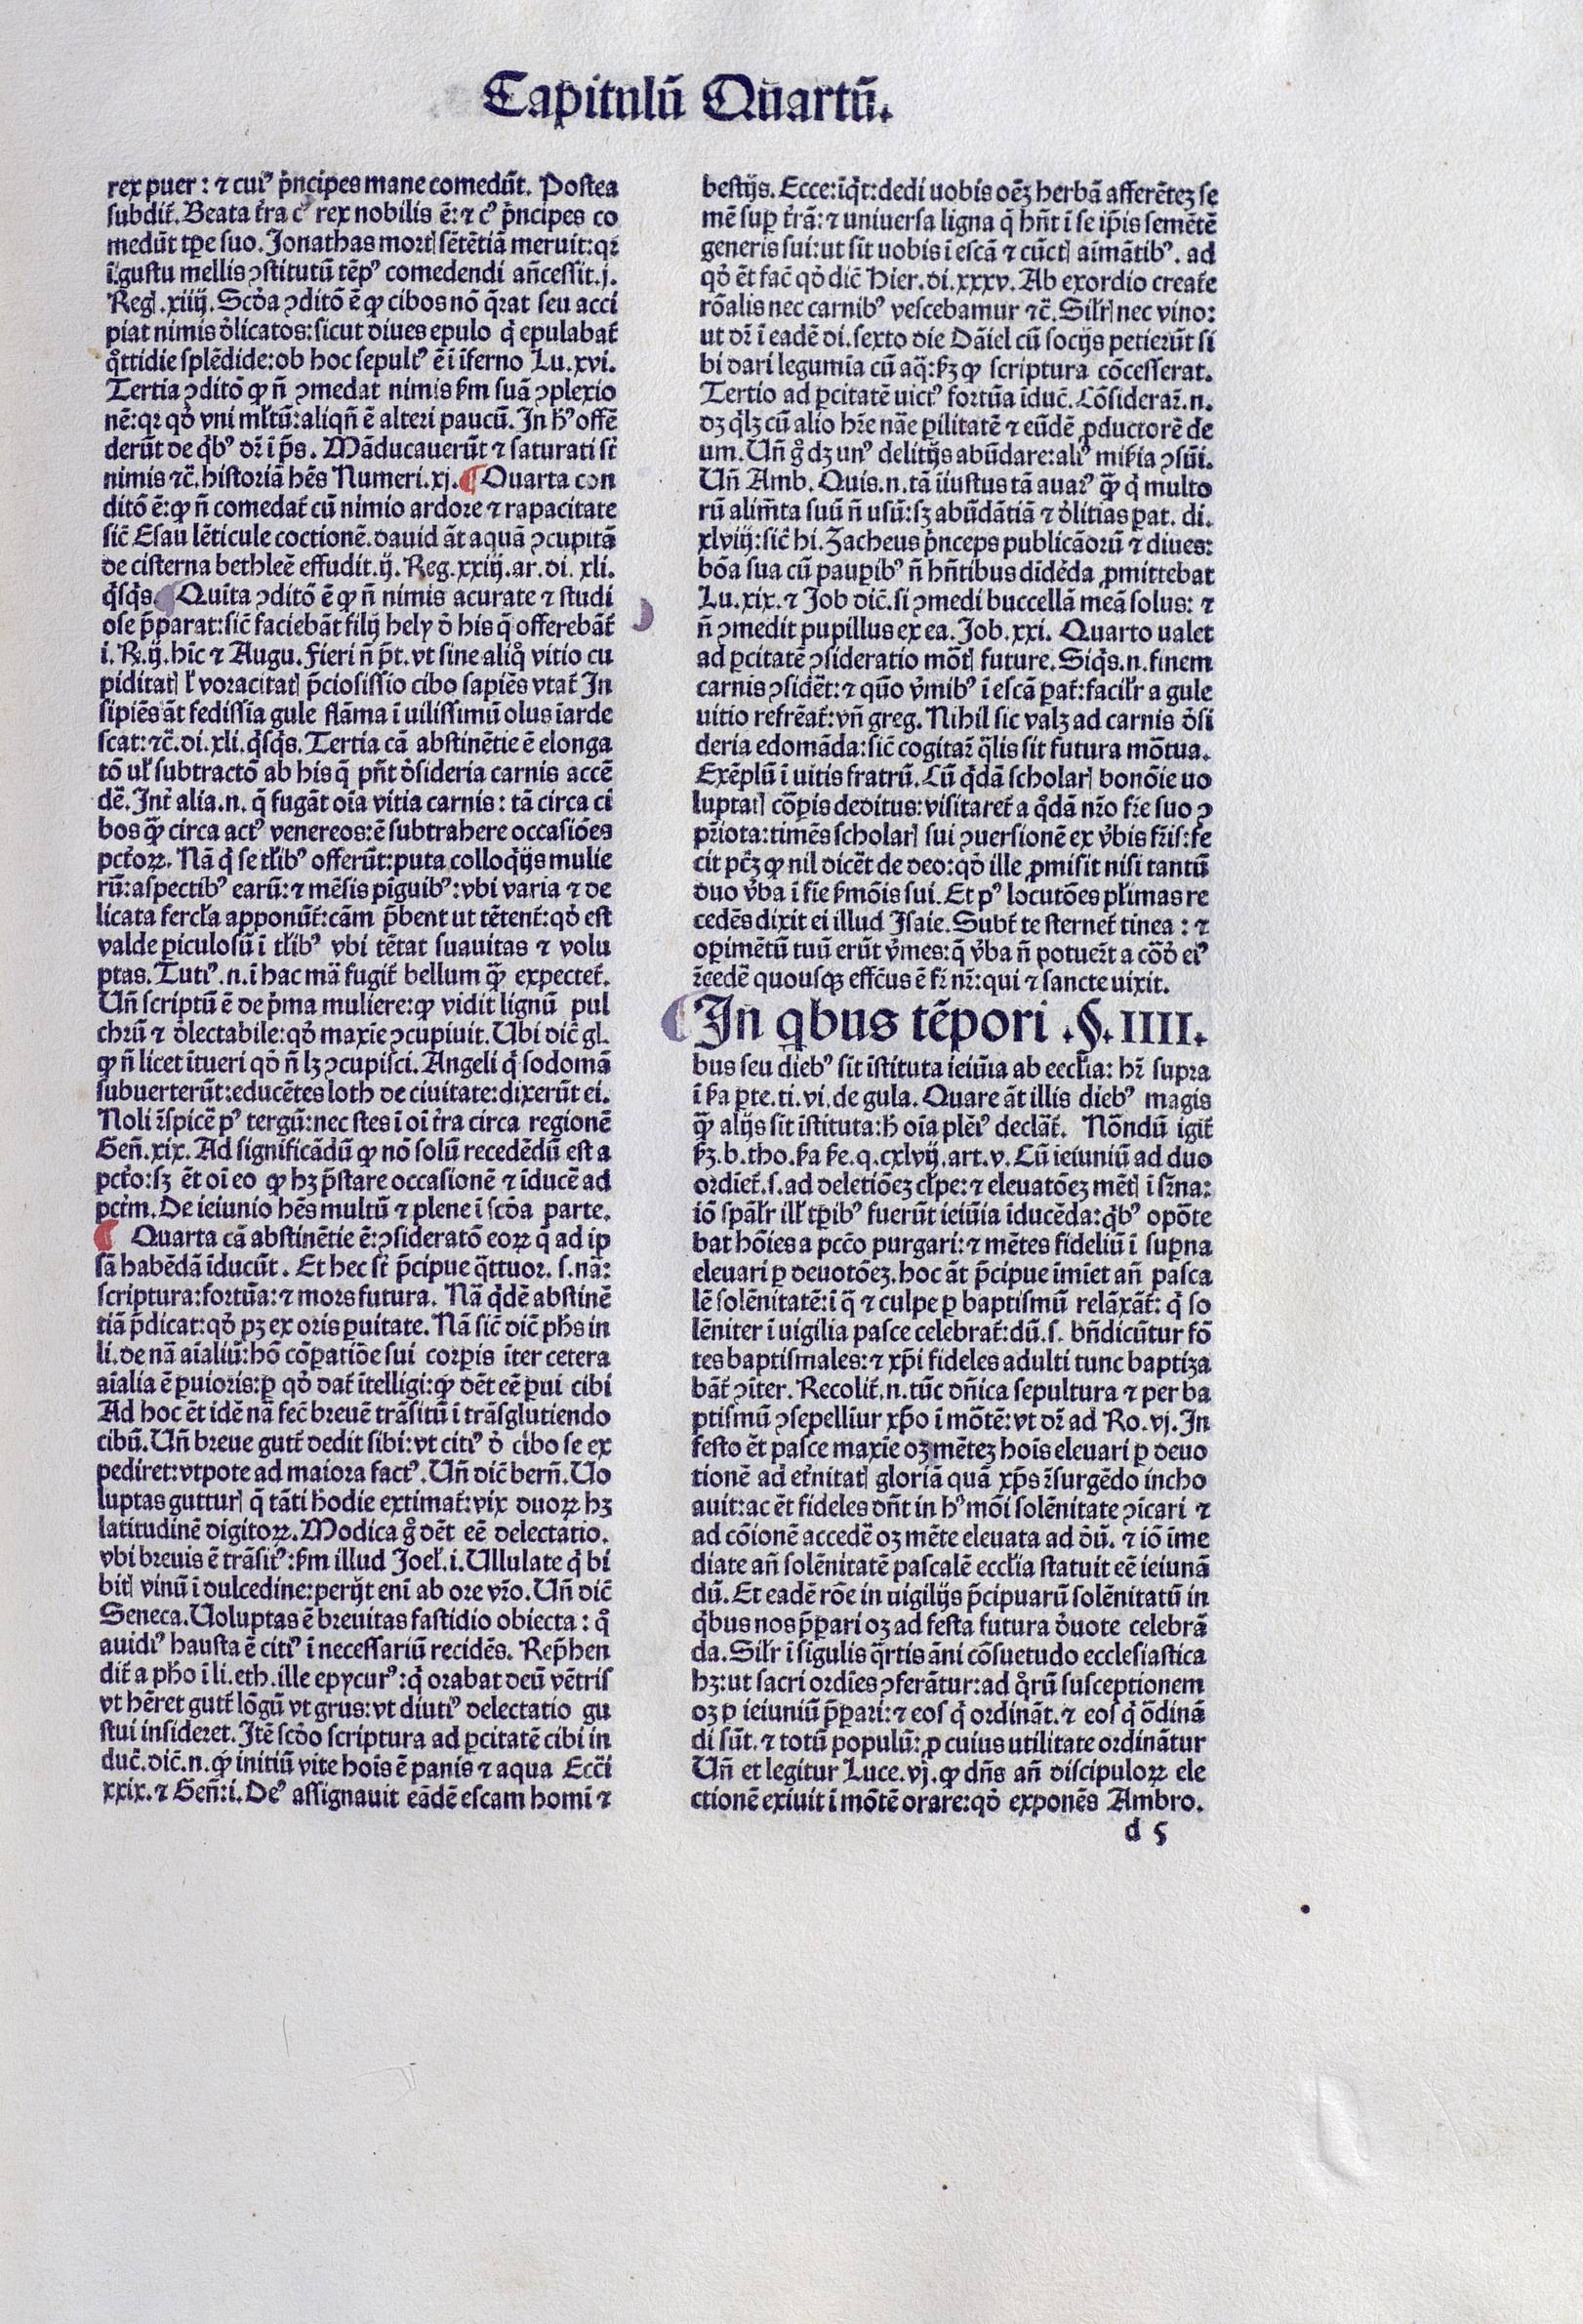 Capitulū Quartū.
rex puer: ⁊ cuiꝰ p̄ncipes mane comedūt. Postea
subdit̄. Beata t̄ra cꝰ rex nobilis ē: ⁊ cꝰ p̄ncipes co
medūt tꝑe suo. Jonathas mortꝭ sētētiā meruit: qꝛ
ī gustu mellis ꝯstitutū tēpꝰ comedendi añcessit. j.
Regꝭ. xiiij. Scd̄a ꝯditō ē ꝙ cibos nō q̄rat seu acci
piat nimis d̄licatos: sicut diues epulo q̄ epulabat̄
q̊ttidie splēdide: ob hoc sepultꝰ ē ī īferno Lu. xvi.
Tertia ꝯditō ꝙ ñ ꝯmedat nimis ẜm suā ꝯplexio
nē: qꝛ qd̄ vni ml̄tū: aliqñ ē alteri paucū. In hꝰ offē
derūt de q̄bꝰ dr̄ ī p̄s. Māducauerūt ⁊ saturati st̄
nimis ⁊c̄. historiā hēs Numeri. xj. ¶ Quarta con
ditō ē: ꝙ ñ comedat̄ cū nimio ardore ⁊ rapacitate
sic̄ Esau lēticule coctionē. dauid āt aquā ꝯcupitā
de cisterna bethleē effudit. ij. Reg. xxiij. ar. di. xli.
q̄sq̄s. Quīta ꝯditō ē ꝙ ñ nimis acurate ⁊ studi
ose p̄parat: sic̄ faciebāt filij hely d̄ his q̄ offerebāt̄
i. R. ij. hīc ⁊ Augu. Fieri ñ p̄t. vt sine aliq̊ vitio cu
piditatꝭ l̄ voracitatꝭ p̄ciosissīo cibo sapiēs vtat̄ In
sipiēs āt fedissīa gule flāma ī uilissimū olus īarde
scat: ⁊c̄. di. xli. q̄sq̄s. Tertia cā abstinētie ē elonga
tō ul̄ subtractō ab his q̄ pñt d̄sideria carnis accē
dē. Int̄ alia. n. q̄ fugāt oīa vitia carnis: tā circa ci
bos qꝙ̄ circa actꝰ venereos: ē subtrahere occasiōes
pct̄oꝝ. Nā q̄ se tl̄ibꝰ offerūt: puta colloq̄ijs mulie
rū: aspectibꝰ earū: ⁊ mēsis pīguibꝰ: vbi varia ⁊ de
licata fercl̄a apponūt̄: cām p̄bent ut tētent̄: qd̄ est
valde ꝑiculosū ī tl̄ibꝰ vbi tētat suauitas ⁊ volu
ptas. Tutiꝰ. n. ī hac mā fugit̄ bellum qꝙ̄ expectet̄.
Uñ scriptū ē de p̄ma muliere: ꝙ vidit lignū pul
chrū ⁊ d̄lectabile: qd̄ maxīe ꝯcupiuit. Ubi dic̄ gl.
ꝙ ñ licet ītueri qd̄ ñ lꝫ ꝯcupisci. Angeli q̄ sodomā
subuerterūt: educētes loth de ciuitate: dixerūt ei.
Noli r̄spicē pꝰ tergū: nec stes ī oī t̄ra circa regionē
Geñ. xix. Ad significādū ꝙ nō solū recedēdū est a
pct̄o: sꝫ ēt oī eo ꝙ hꝫ p̄stare occasionē ⁊ īducē ad
pct̄m. De ieiunio hēs multū ⁊ plene ī scd̄a parte.
¶ Quarta cā abstinētie ē: ꝯsideratō eoꝝ q̄ ad ip
sā habēdā īducūt. Et hec st̄ p̄cipue q̄ttuor. s. nā:
scriptura: fortūa: ⁊ mors futura. Nā q̄dē abstinē
tiā p̄dicat: qd̄ pꝫ ex oris ꝑuitate. Nā sic̄ dic̄ ph̄s in
li. de nā aīaliū: hō cōꝑatiōe sui corꝑis īter cetera
aīalia ē ꝑuioris: ꝑ qd̄ dat̄ ītelligi: ꝙ dēt eē ꝑui cibi
Ad hoc ēt idē nā fec̄ breuē trāsitū ī trāsglutiendo
cibū. Uñ breue gutt̄ dedit sibi: vt citiꝰ d̄ cibo se ex
pediret: vtpote ad maiora factꝰ. Uñ dic̄ berñ. Uo
luptas gutturꝭ q̄ tāti hodie extimat̄: vix duoꝝ hꝫ
latitudinē digitoꝝ. Modica g̊ dēt eē delectatio.
vbi breuis ē trāsitꝰ: ẜm illud Joel̄. i. Ullulate q̄ bi
bitꝭ vinū ī dulcedine: perijt enī ab ore vr̄o. Uñ dic̄
Seneca. Uoluptas ē breuitas fastidio obiecta: q̊
auidiꝰ hausta ē citiꝰ ī necessariū recidēs. Rep̄hen
dit̄ a ph̄o ī li. eth. ille epycurꝰ: q̄ orabat deū vētris
vt hēret gutt̄ lōgū vt grus: vt diutiꝰ delectatio gu
stui insideret. Itē scd̄o scriptura ad ꝑcitatē cibi in
duc̄. dic̄. n. ꝙ initiū vite hoīs ē panis ⁊ aqua Ecc̄i
xxix. ⁊ Geñ: i. Deꝰ assignauit eādē escam homi ⁊
bestijs. Ecce: īq̄t: dedi uobis oēꝫ herbā afferēteꝫ se
mē suꝑ t̄rā: ⁊ universa ligna q̄ hñt ī se ip̄is semētē
generis sui: ut sīt uobis ī escā ⁊ cūctꝭ aīmātibꝰ. ad
qd̄ ēt fac̄ qd̄ dic̄ Hier. di. xxxv. Ab exordio create
rōalis nec carnibꝰ vescebamur ⁊c̄. Sil̄rꝭ nec vino:
ut dr̄ ī eadē di. sexto die Dāiel cū socijs petierūt si
bi dari legumīa cū aq̄: ẜꝫ ꝙ scriptura cōcesserat.
Tertio ad ꝑcitatē uictꝰ fortūa īduc̄. Cōsiderar̄. n.
dꝫ q̄lꝫ cū alio hr̄e nāe ꝑilitatē ⁊ eūdē ꝓductorē de
um. Uñ g̊ dꝫ unꝰ delitijs abūdare: aliꝰ mīẜia ꝯsūi.
Uñ Amb. Quis. n. tā īiustus tā auarꝰ qꝙ̄ q̄ multo
rū alim̄ta suū ñ usū: sꝫ abūdātiā ⁊ d̄litias ꝑat. di.
xlviij: sic̄ hi. Zacheus p̄nceps publicāorū ⁊ diues:
bōa sua cū pauꝑibꝰ ñ hñtibus dīdēda ꝓmittebat
Lu. xix. ⁊ Job dic̄. si ꝯmedi buccellā meā solus: ⁊
ñ ꝯmedit pupillus ex ea. Job. xxi. Quarto ualet
ad ꝑcitatē ꝯsideratio mōtꝭ future. Siq̄s. n. finem
carnis ꝯsidēt̄: ⁊ quō v̄mibꝰ ī escā ꝑat̄: facil̄r a gule
uitio refrēat̄: vñ greg. Nihil sic valꝫ ad carnis d̄si
deria edomāda: sic̄ cogitar̄ q̄lis sit futura mōtua.
Exēplū ī uitis fratrū. Cū q̄dā scholarꝭ bonōie uo
luptatꝭ cōꝑis deditus: visitaret̄ a q̊dā nr̄o fr̄e suo ꝯ
pr̄iota: timēs scholarꝭ sui ꝯuersionē ex v̄bis fr̄is: fe
cit pc̄ꝫ ꝙ nil dicēt de deo: qd̄ ille ꝓmisit nisi tantū
duo v̄ba ī fīe ẜmōis sui. Et pꝰ locutōes pl̄imas re
cedēs dixit ei illud Isaie. Subt̄ te sternet̄ tinea: ⁊
oꝑimētū tuū erūt v̄mes: q̄ v̄ba ñ potuer̄t a cōd̄ eiꝰ
r̄cedē quousqꝫ effc̄us ē fr̄ nr̄: qui ⁊ sancte uixit.
¶ In q̄bus tēpori .§. IIII.
bus seu diebꝰ sit īstituta ieiūia ab eccl̄ia: hr̄ supra
ī ẜa ꝑte. ti. vi. de gula. Quare āt illis diebꝰ magis
qꝙ̄ alijs sit īstituta: h̄ oīa plēiꝰ declāt̄. Nōndū igit̄
ẜꝫ. b. tho. ẜa ẜe. q. cxlvij. art. v. Cū ieiuniū ad duo
ordīet̄. s. ad deletiōeꝫ cl̄pe: ⁊ eleuatōeꝫ mētꝭ ī sr̄na:
iō spāl̄r ill̄ tꝑibꝰ fuerūt ieiūia īducēda: q̄bꝰ opōte
bat hōies a pccō purgari: ⁊ mētes fideliū ī suꝑna
eleuari ꝑ deuotōeꝫ. hoc āt p̄cipue īmīet añ pasca
lē solēnitatē: ī q̄ ⁊ culpe ꝑ baptismū relāxāt̄: q̄ so
lēniter ī uigilia pasce celebrat̄: dū. s. bñdicūtur fō
tes baptismales: ⁊ xp̄i fideles adulti tunc baptiza
bāt̄ ꝯīter. Recolit̄. n. tūc dñica sepultura ⁊ per ba
ptismū ꝯsepellīur xp̄o ī mōtē: vt dr̄ ad Ro. vj. In
festo ēt pasce maxīe oꝫ mēteꝫ hoīs eleuari ꝑ deuo
tionē ad et̄nitatꝭ gloriā quā xp̄s r̄surgēdo incho
auit: ac ēt fideles dñt in hꝰ mōi solēnitate ꝯīcari ⁊
ad cōionē accedē oꝫ mēte eleuata ad dū. ⁊ iō īme
diate añ solēnitatē pascalē eccl̄ia statuit eē ieiunā
dū. Et eadē rōe in uigilijs p̄cipuarū solēnitatū in
q̄bus nos p̄ꝑari oꝫ ad festa futura d̄uote celebrā
da. Sil̄r ī sīgulis q̄rtis āni cōsuetudo ecclesiastica
hꝫ: ut sacri ordīes ꝯferātur: ad q̄rū susceptionem
oꝫ ꝑ ieiuniū p̄ꝑari: ⁊ eos q̄ ordināt. ⁊ eos q̄ ōdinā
di sūt. ⁊ totū populū: ꝓ cuius utilitate ordinātur
Uñ et legitur Luce. vj. ꝙ dñs añ discipuloꝝ ele
ctionē exiuit ī mōtē orare: qd̄ exponēs Ambro.
d 5